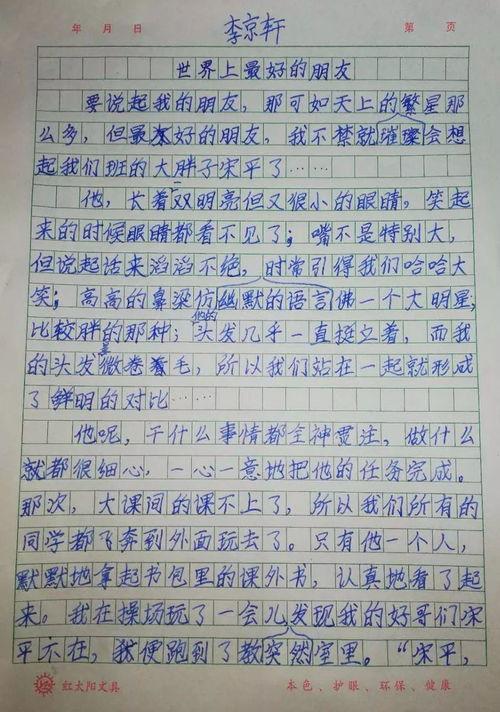 年 月 日 第 页
李京轩
世界上最好的朋友
要说起我的朋友，那可如天上的繁星那
么多，但最好的朋友，我不禁就会想
璀璨
起我们班的大胖子宋平了……
他，长着双明亮但又很小的眼睛，笑起
一
来的时候眼睛都看不见了；嘴不是特别大，
但说起话来滔滔不绝，时常引得我们哈哈大
笑；高高的鼻梁仿佛一个大明星；
幽默的语言
他的
比较胖的那种；头发几乎一直挺立着，而我
的头发微卷毛，所以我们站在一起就形成
是
了鲜明的对比……
他呢，干什么事情都全神贯注，做什么
就都很细心，一心一意地把他的任务完成。
那次，大课间的课不上了，所以我们所有的
同学都飞奔到外面玩去了。只有他一个人，
默默地拿起书包里的课外书，认真地看了起
来。我在操场玩了一会儿发现我的好哥们宋
平不在，我便跑到了教室里。“宋平，
突然
红太阳文具 本色、护眼、环保、健康